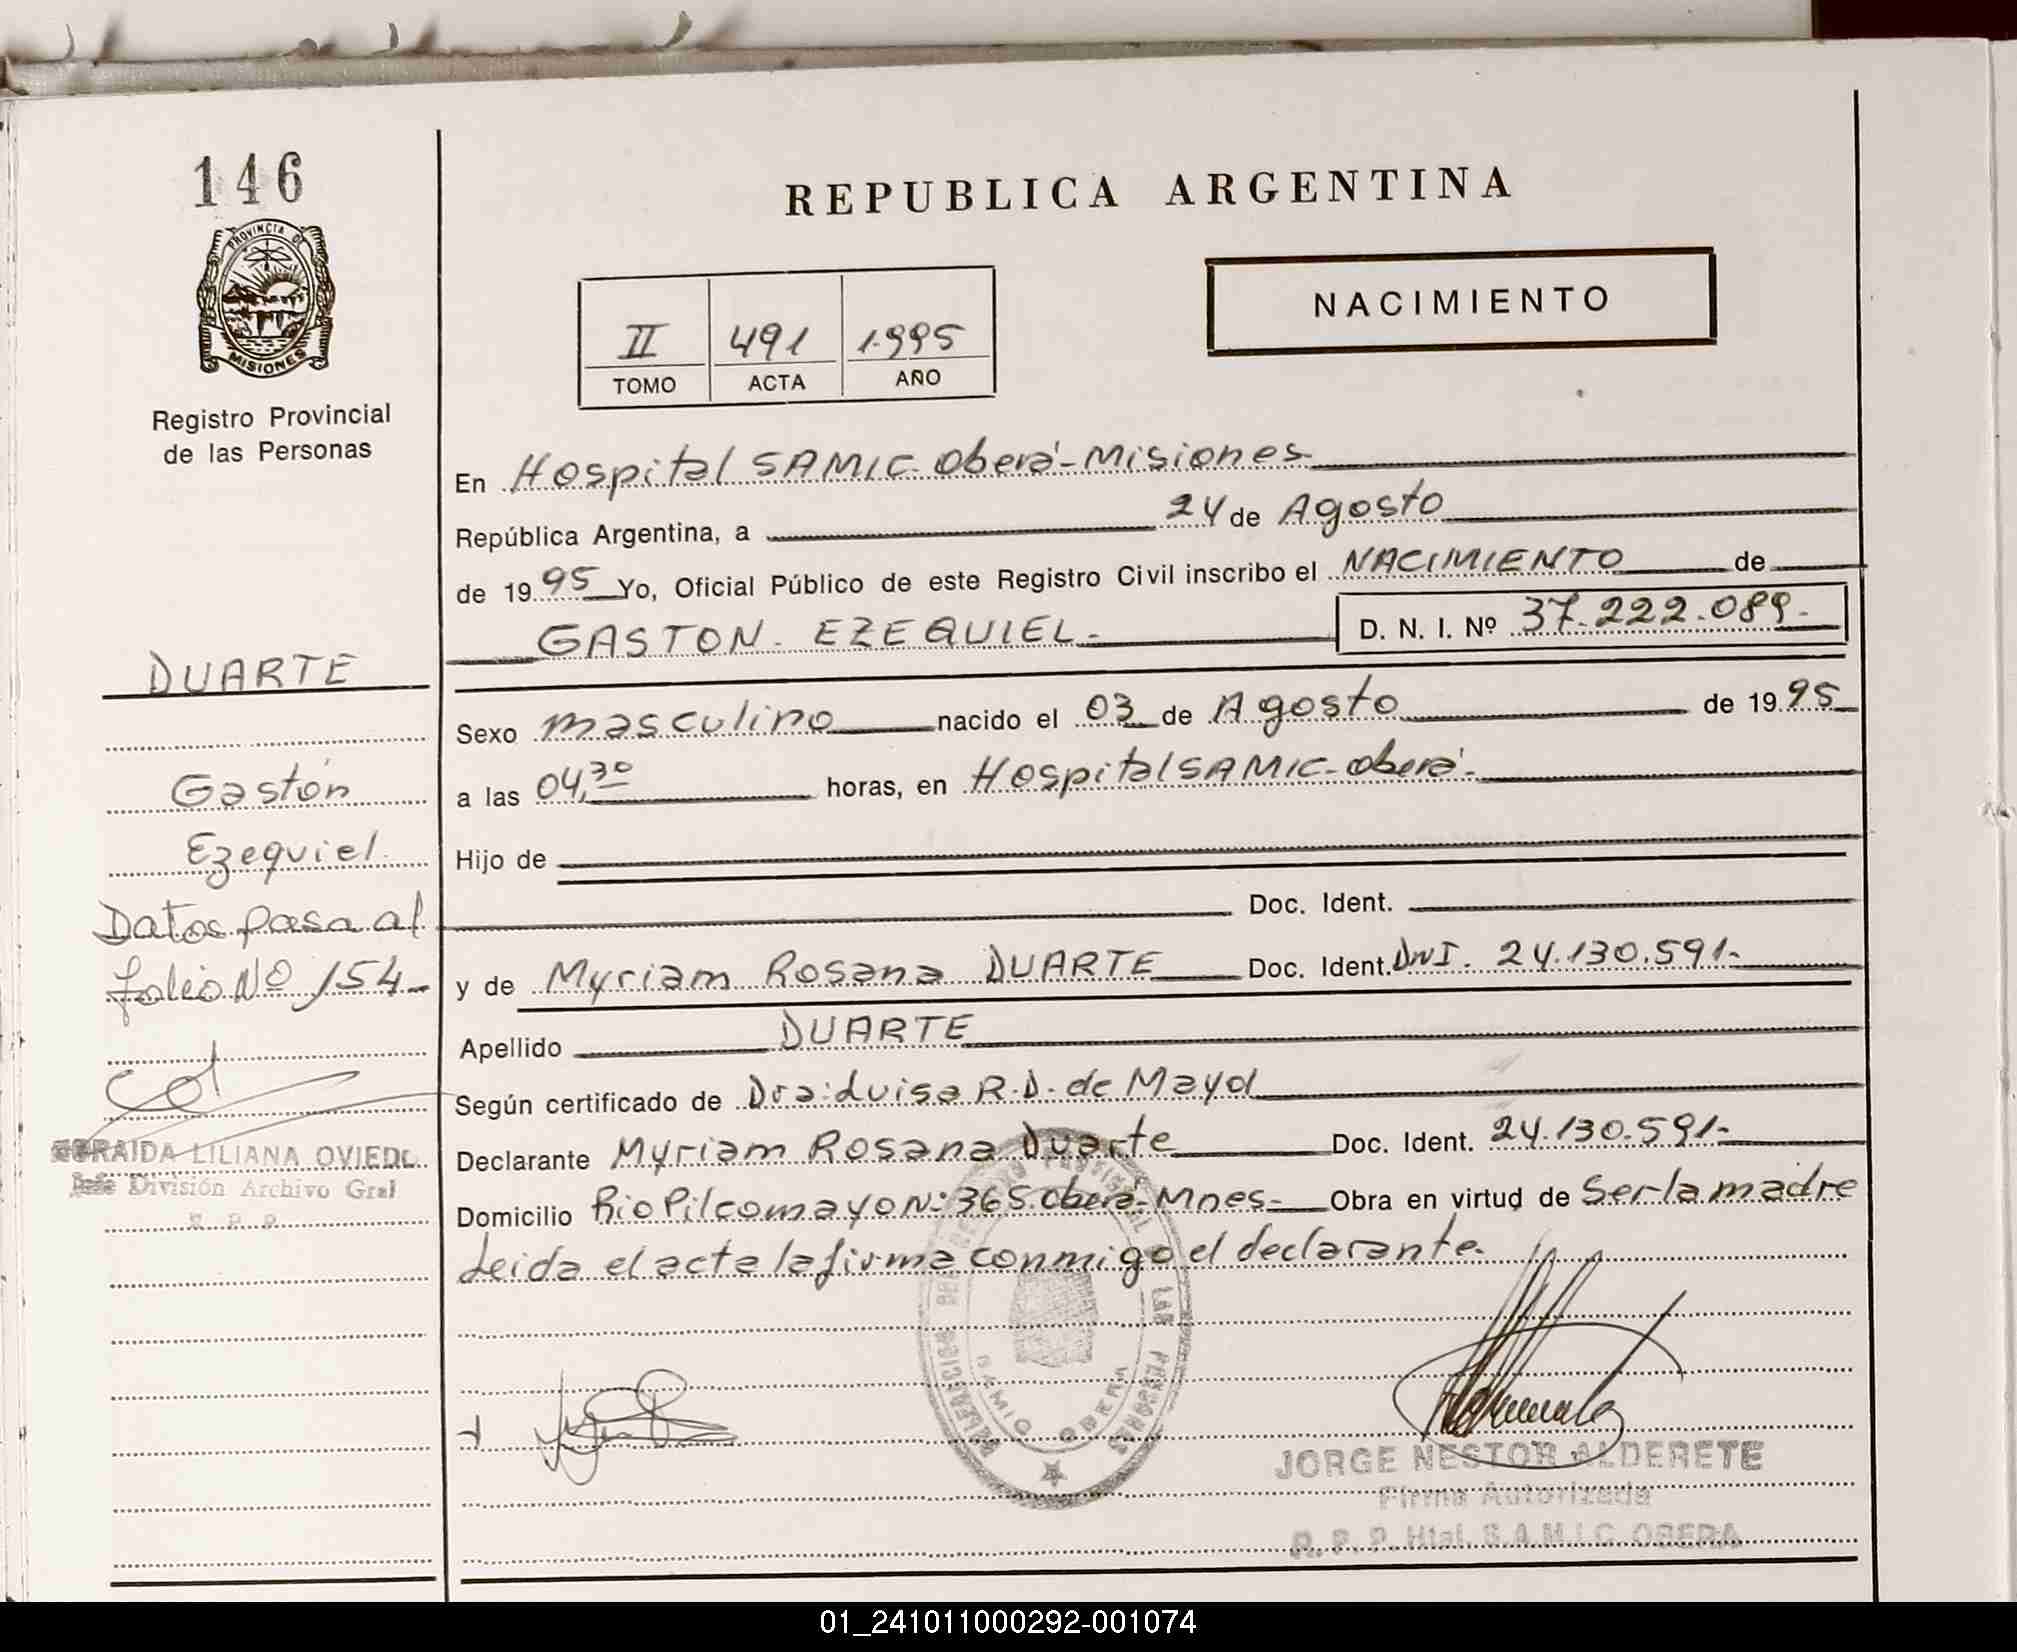 146
PROVINCIA DE
MISIONES
Registro Provincial
de las Personas
DUARTE
Gastón
Ezequiel
Datos pasa al
folio Nº 154-
LILIANA OVIEDO
Jefe División Archivo Gral
REPUBLICA ARGENTINA
II 491 1.995
TOMO ACTA AÑO
NACIMIENTO
En Hospital SAMIC-Oberá-Misiones
República Argentina, a 24 de Agosto
de 1995 Yo, Oficial Público de este Registro Civil inscribo el NACIMIENTO de
GASTON EZEQUIEL- D. N. I. Nº 37.222.089-
Sexo masculino nacido el 03 de Agosto de 1995
a las 04,30 horas, en Hospital SAMIC-oberá-
Hijo de
Doc. Ident.
y de Myriam Rosana DUARTE Doc. Ident. DNI. 24.130.591-
Apellido DUARTE
Según certificado de Dra: Luisa R.D. de Mayol
Declarante Myriam Rosana Duarte Doc. Ident. 24.130.591-
Domicilio Rio Pilcomayo Nº 365. Oberá-Mnes- Obra en virtud de Ser la madre
Leida el acta la firma conmigo el declarante.
JORGE NESTOR ALDERETE
Firma Autorizada
R. P. P. Htal. S.A.M.I.C. OBERA
01_241011000292-001074